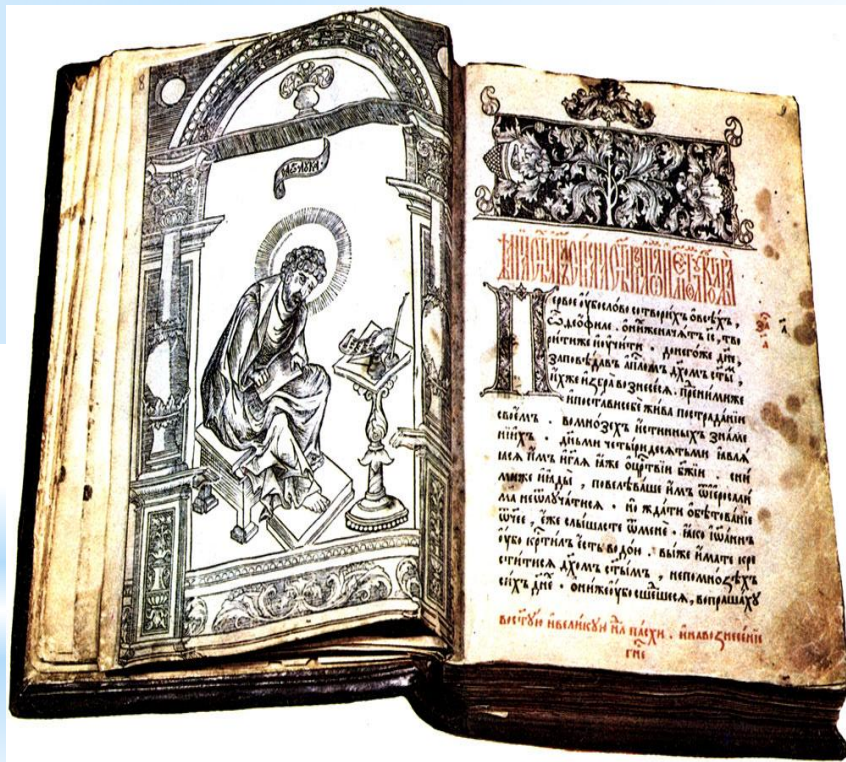 8
Первое ѹбо слово сотворихъ о всѣхъ,
ѽ деофиле. о нихже начатъ і҃с, тво
ритиже и ѹчити. до негоже дн҃е,
заповѣдавъ ап҃лмъ дх҃омъ ст҃ы,
ихже избра вознесеся. пред нимиже
и постави себе жива по страданїи
своемъ. во мнозехъ истинныхъ знаме
нїихъ. дньми четыридесятьми ꙗвлѧ
ѧсѧ имъ и гл҃ѧ ꙗже о цр҃твїи бж҃їи. с ни
миже и ꙗды, повелѣваше имъ ѿ їерсали
ма не ѿлучатися. но ждати обѣтованїе
ѿчее, еже слышасте ѿ мене. ꙗко їѡаннъ
ѹбо кр҃тилъ есть водою. выже имате кре
ститися дх҃омъ ст҃ымъ, не по мнозѣхъ
сихъ дн҃е. ониже ѹбо сшешеся, вопрашахꙋ
во ст҃ꙋю и великꙋю пасхи. и на вознесенїе
гн҃е